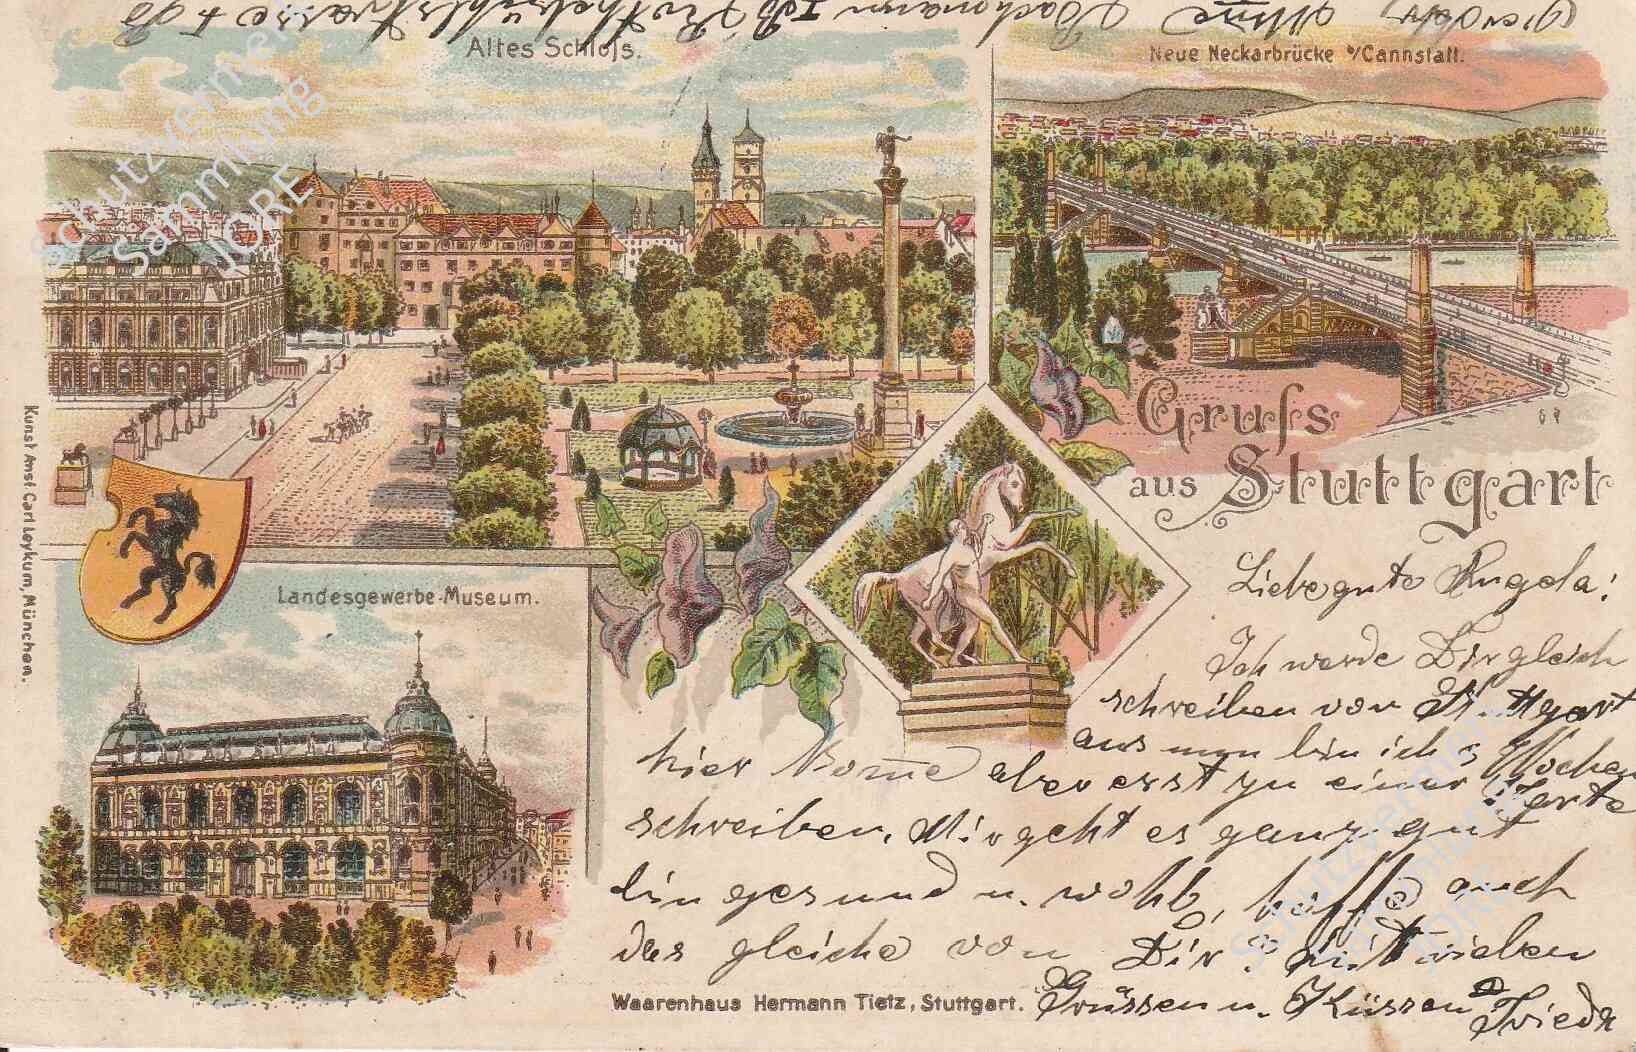 Adr. Anna Bachmann Rothebühlstrasse
Altes Schloſs.
Neue Neckarbrücke b/Cannstatt.
Schutzvermerk
Sammlung
JORE
Gruſs
aus Stuttgart
Kunst Anst. Carl Leykum, München.
Landesgewerbe-Museum.
Liebe gute Angela!
Ich werde Dir gleich
schreiben von Stuttgart
aus nun bin ich 3 Wochen
hier komme aber erst zu einer Karte
schreiben. Mir geht es ganz gut
bin gesund u. wohl, hoffe auch
des gleiche von Dir. Mit vielen
Grüssen u. Küssen Friedr
Waarenhaus Hermann Tietz, Stuttgart.
Schutzvermerk
Sammlung
JORE